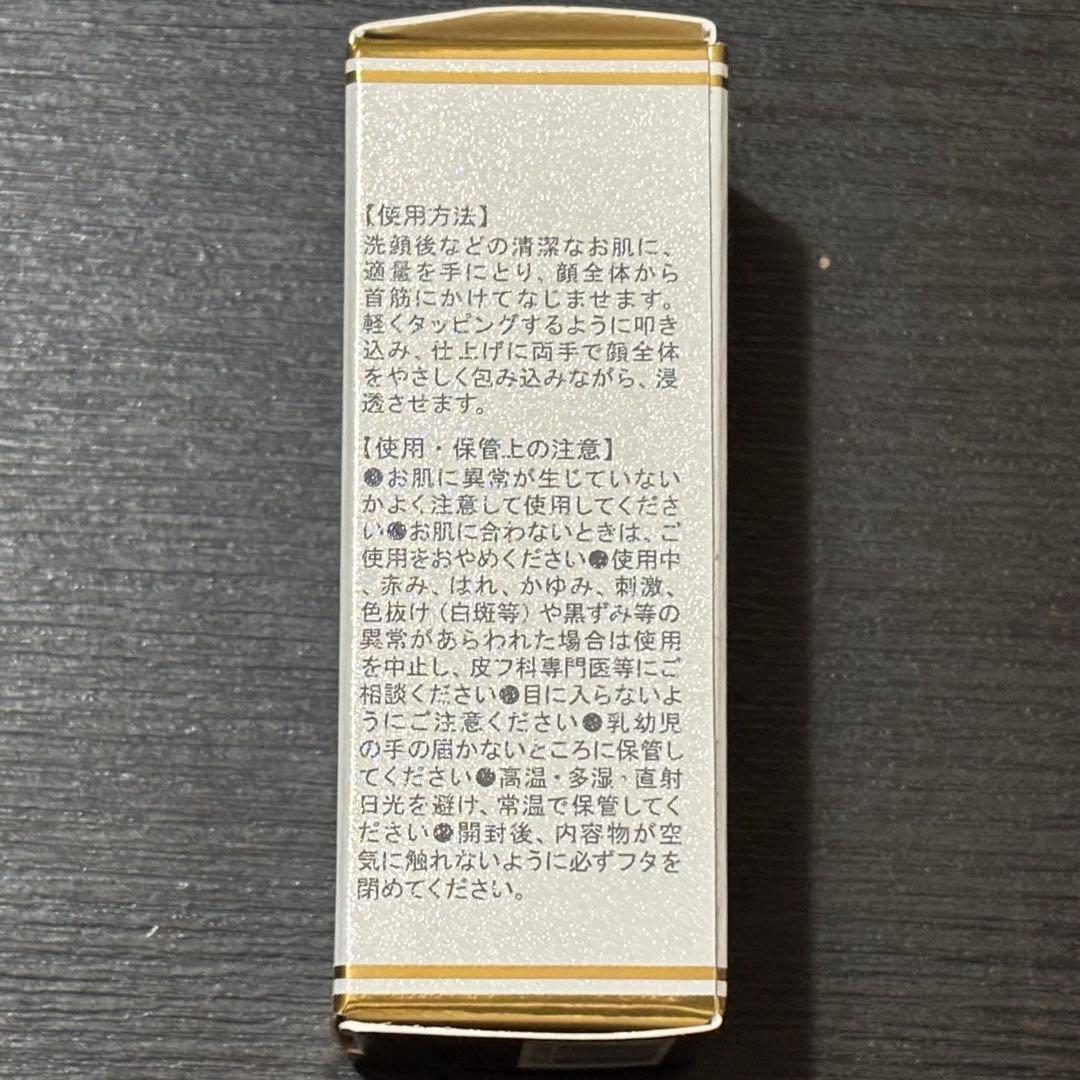 【使用方法】
洗顔後などの清潔なお肌に、
適量を手にとり、顔全体から
首筋にかけてなじませます。
軽くタッピングするように叩き
込み、仕上げに両手で顔全体
をやさしく包み込みながら、浸
透させます。
【使用・保管上の注意】
●お肌に異常が生じていない
かよく注意して使用してくださ
い●お肌に合わないときは、ご
使用をおやめください●使用中
、赤み、はれ、かゆみ、刺激、
色抜け(白斑等)や黒ずみ等の
異常があらわれた場合は使用
を中止し、皮フ科専門医等にご
相談ください●目に入らないよ
うにご注意ください●乳幼児
の手の届かないところに保管し
てください●高温・多湿・直射
日光を避け、常温で保管してく
ださい●開封後、内容物が空
気に触れないように必ずフタを
閉めてください。